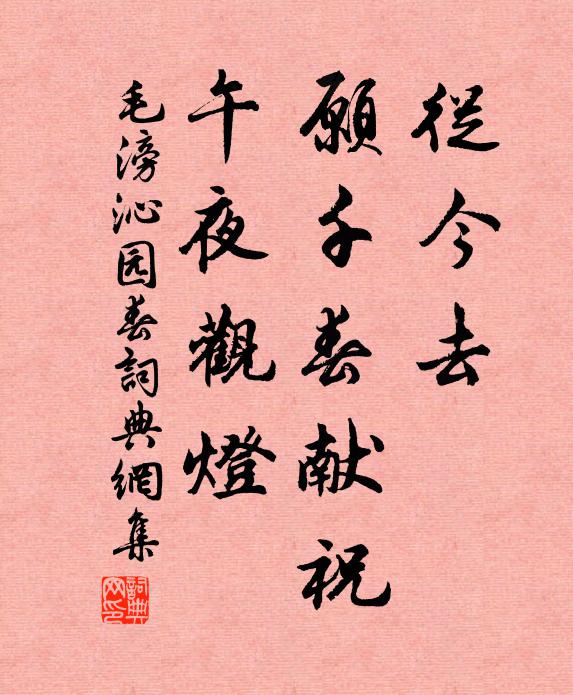 從今去
願千春献祝
午夜觀燈
毛滂沁园春詞典網集
詞典网印